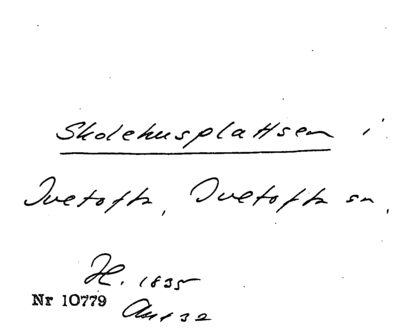 Skolehusplattsen i
Ivetofta, Ivetofta sn,
H. 1835
Nr 10779